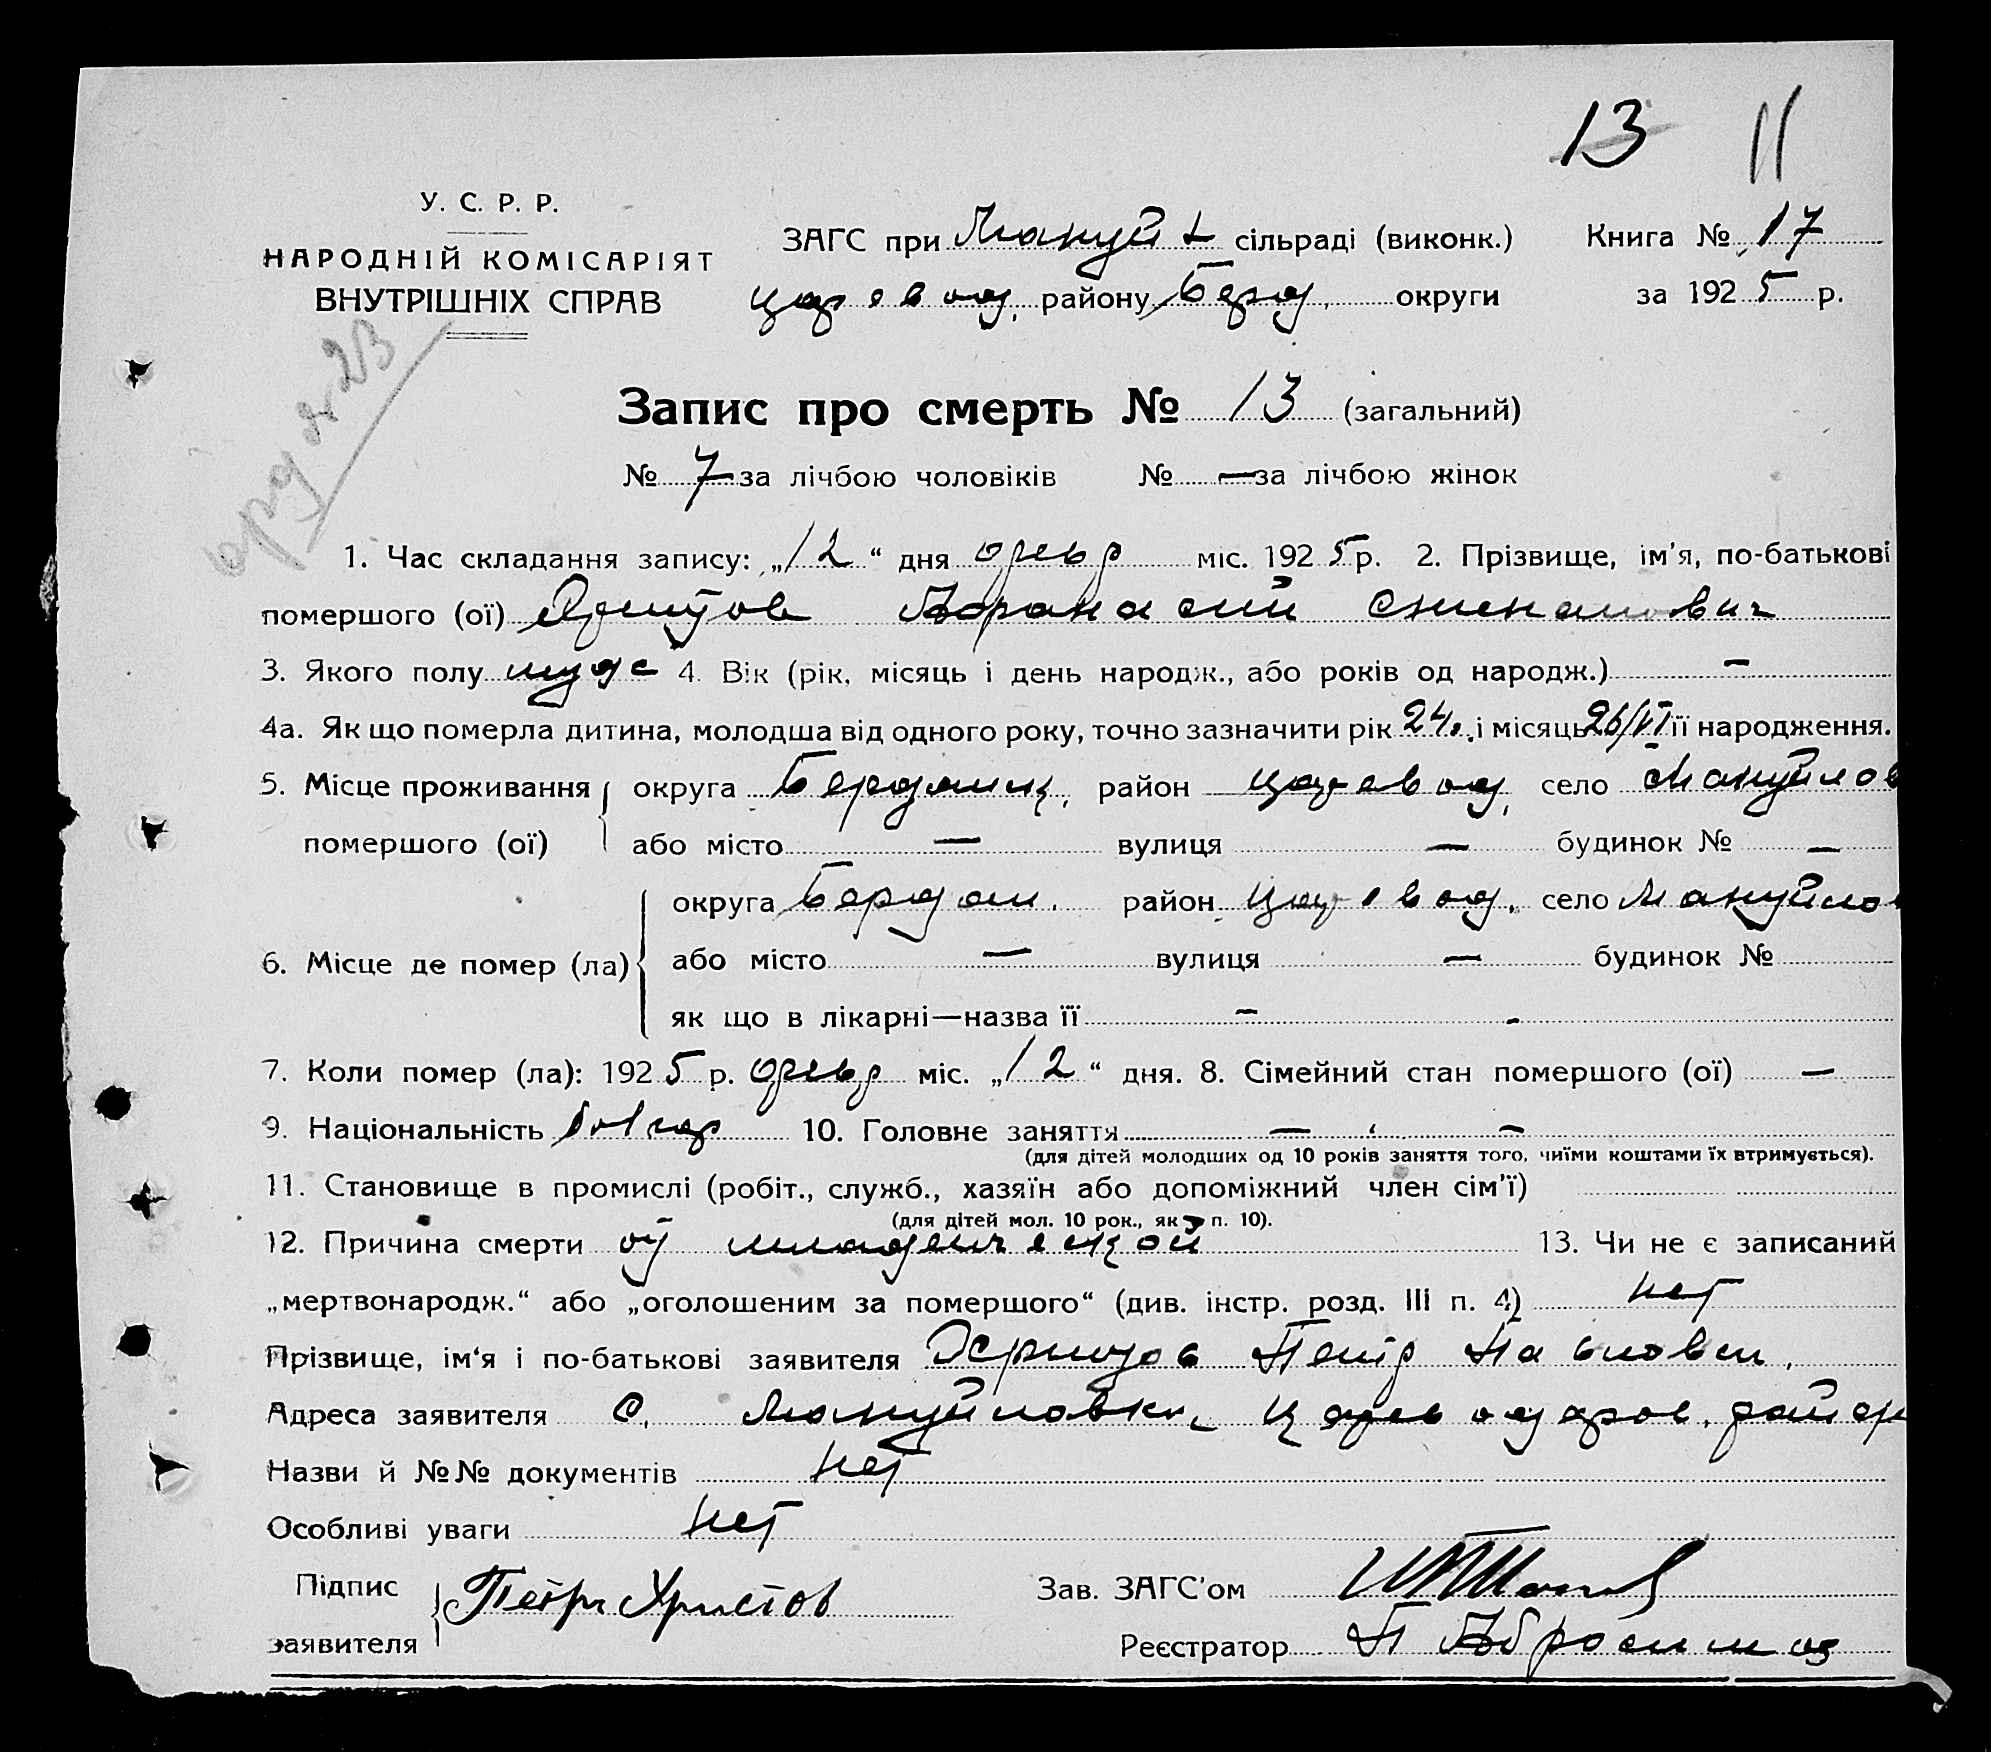 13 11
У. С. Р. Р.
НАРОДНІЙ КОМІСАРІЯТ
ВНУТРІШНІХ СПРАВ
ЗАГС при Мануй сільраді (виконк.) Книга № 17
Царевод, району Берд, округи за 1925 р.
Запис про смерть № 13 (загальний)
№ 7 за лічбою чоловіків № — за лічбою жінок
1. Час складання запису: „12“ дня февр міс. 1925 р. 2. Прізвище, ім'я, по-батькові
помершого (ої) Афанасий Степанович
3. Якого полу мужс 4. Вік (рік, місяць і день народж., або років од народж.) —
4а. Як що померла дитина, молодша від одного року, точно зазначити рік 24г. і місяць 26/VI її народження.
5. Місце проживання округа Бердянц, район Царевод, село Мануйлов
помершого (ої) або місто — вулиця — будинок № —
округа Бердян. район Царевод, село Мануйлов
6. Місце де помер (ла) або місто — вулиця — будинок №
як що в лікарні—назва її — -
7. Коли помер (ла): 1925 р. февр міс. „12“ дня. 8. Сімейний стан помершого (ої) —
9. Національність болгар 10. Головне заняття — —
(для дітей молодших од 10 років заняття того, чиїми коштами їх втримується).
11. Становище в промислі (робіт., служб., хазяїн або допоміжний член сім'ї)
(для дітей мол. 10 рок., як п. 10).
12. Причина смерти от младенческой 13. Чи не є записаний
„мертвонародж.“ або „оголошеним за помершого“ (див. інстр. розд. III п. 4) нет
Прізвище, ім'я і по-батькові заявителя Петр Павлович
Адреса заявителя с. Мануйловки, Цареводаров. район
Назви й №№ документів нет
Особливі уваги нет
Підпис Петр Христов Зав. ЗАГС'ом
заявителя Реєстратор П Абросимов